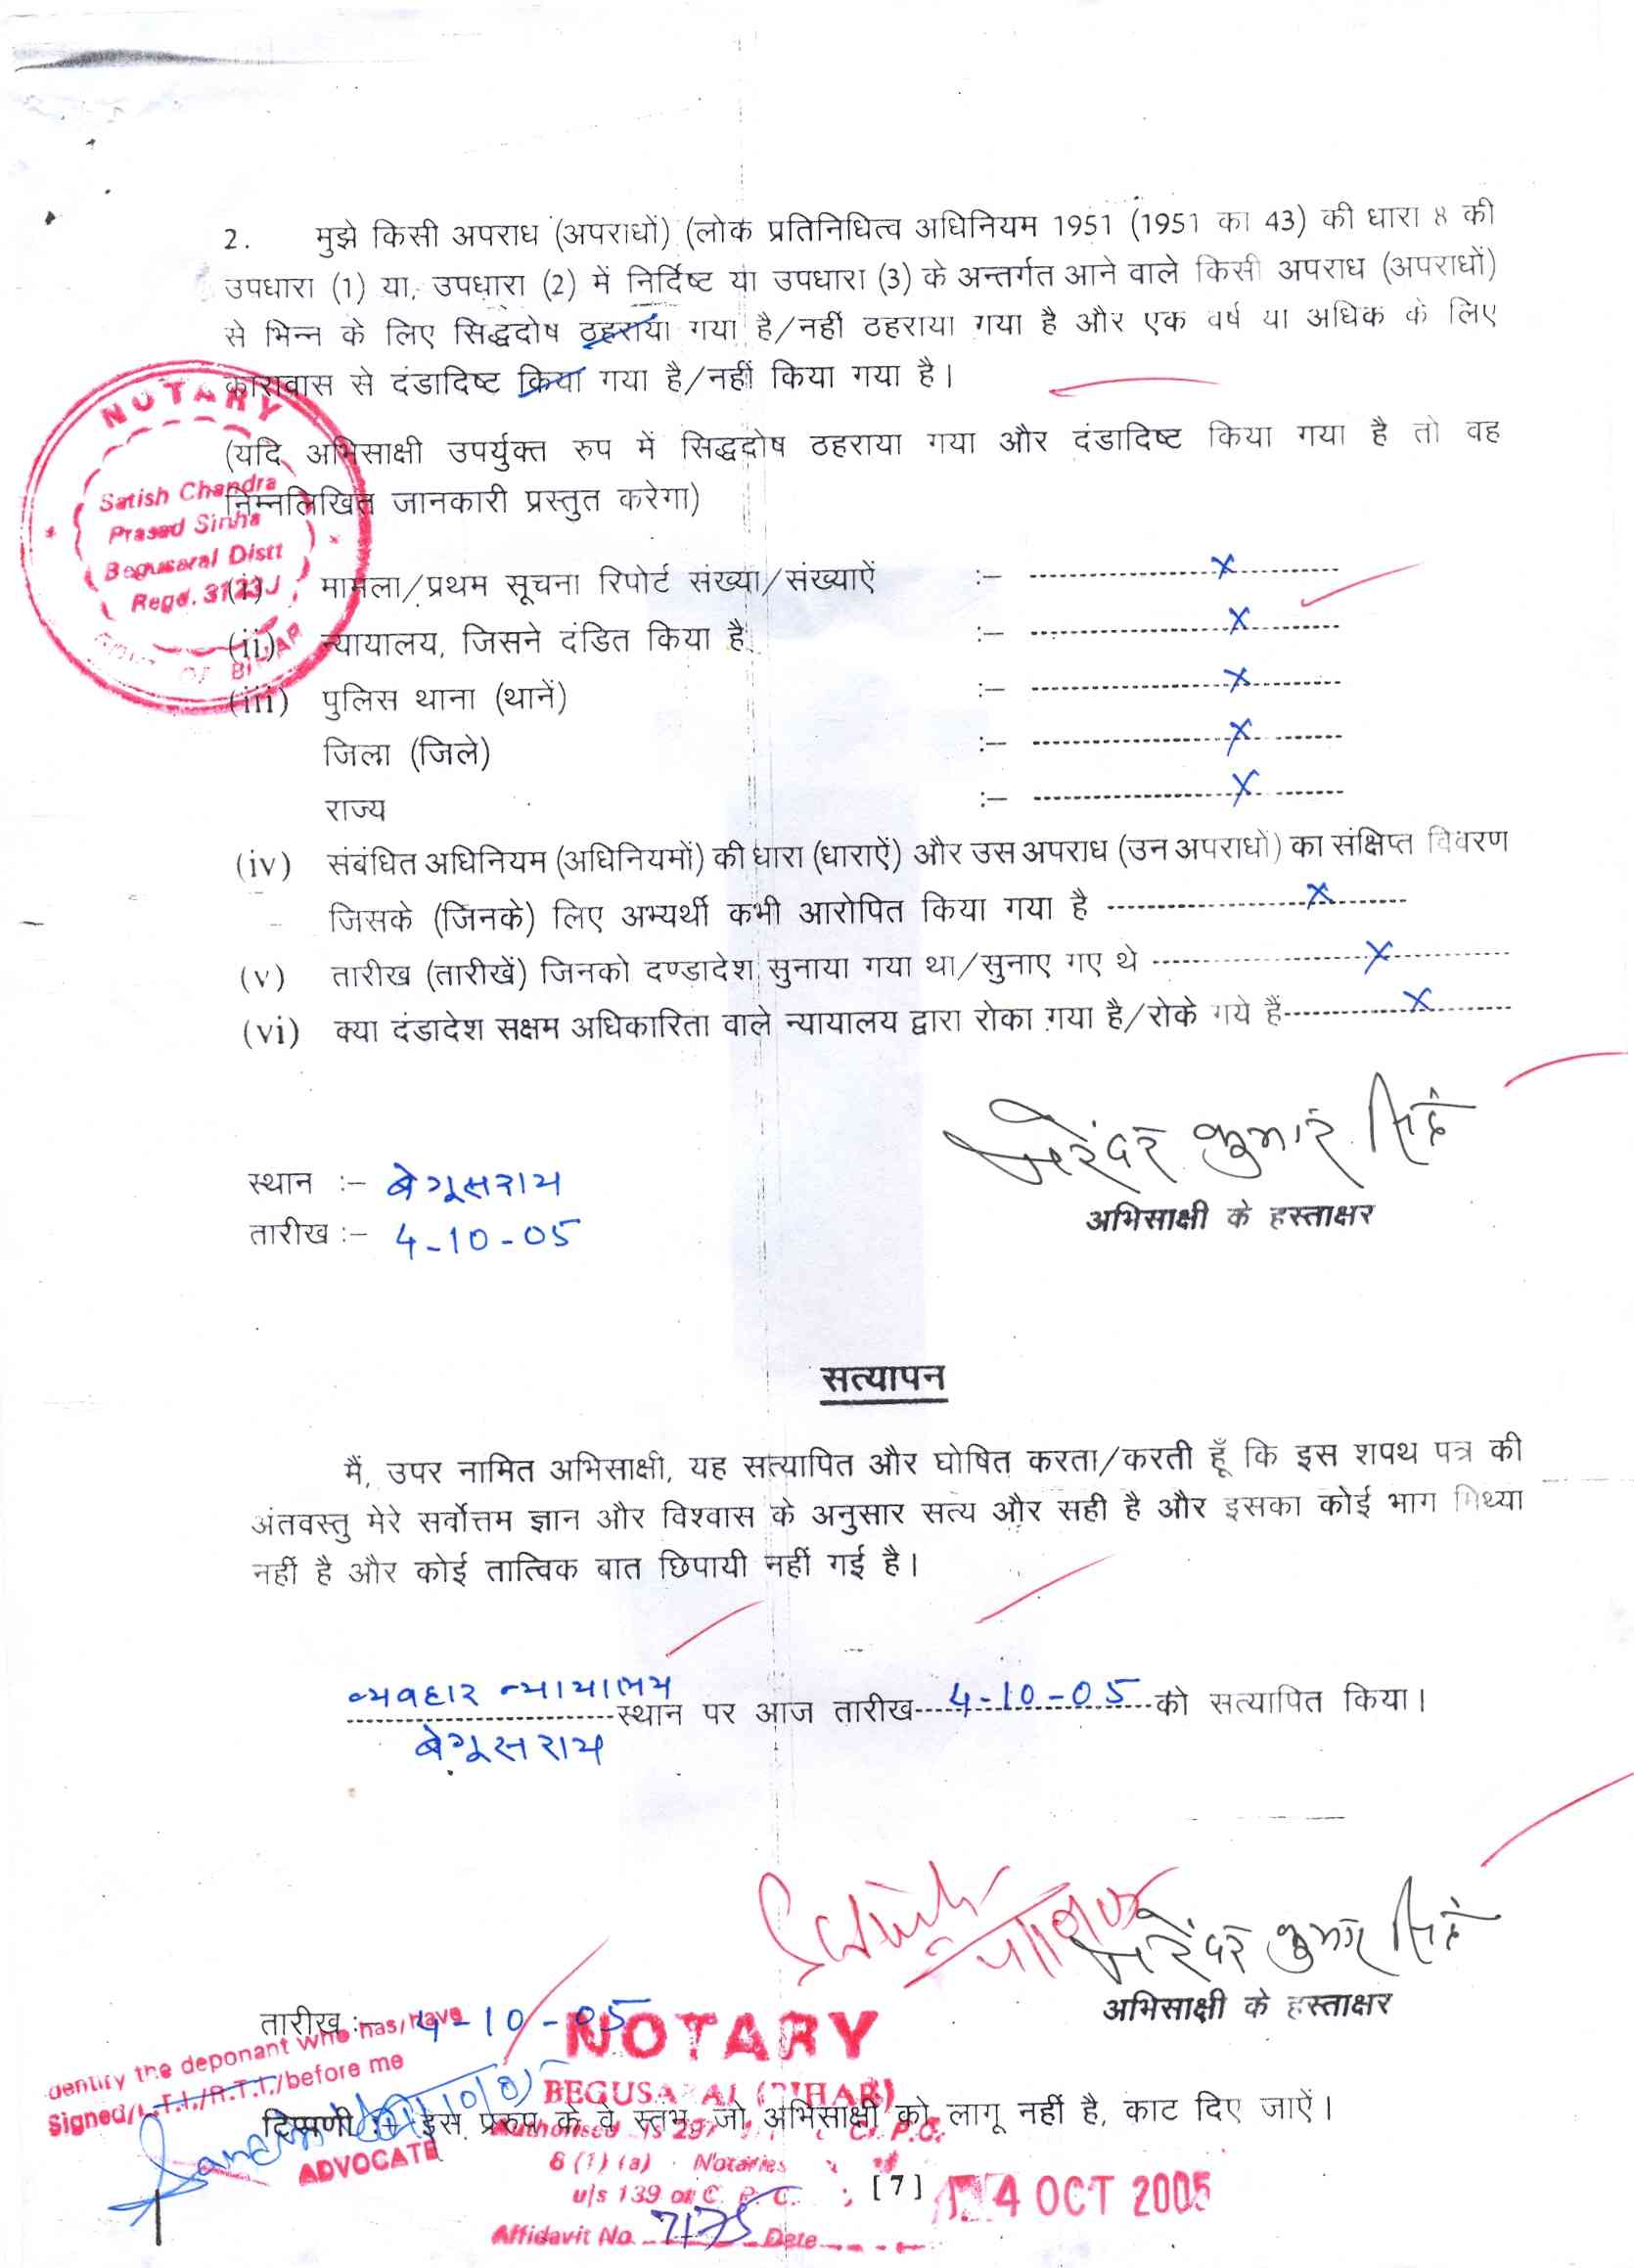 2. मुझे किसी अपराध (अपराधों) (लोक प्रतिनिधित्व अधिनियम 1951 (1951 का 43) की धारा 8 की
उपधारा (1) या, उपधारा (2) में निर्दिष्ट या उपधारा (3) के अन्तर्गत आने वाले किसी अपराध (अपराधों)
से भिन्न के लिए सिद्धदोष ठहराया गया है/नहीं ठहराया गया है और एक वर्ष या अधिक के लिए
कारावास से दंडादिष्ट किया गया है/नहीं किया गया है।
NOTARY
(यदि अभिसाक्षी उपर्युक्त रुप में सिद्धदोष ठहराया गया और दंडादिष्ट किया गया है तो वह
निम्नलिखित जानकारी प्रस्तुत करेगा)
Satish Chandra
Prasad Sinha
Begusarai Distt
Regd. 3123J
OF BIHAR
(i) मामला/प्रथम सूचना रिपोर्ट संख्या/संख्याऐं :– x
(ii) न्यायालय, जिसने दंडित किया है :– x
(iii) पुलिस थाना (थानें) :– x
जिला (जिले) :– x
राज्य :– x
(iv) संबंधित अधिनियम (अधिनियमों) की धारा (धाराऐं) और उस अपराध (उन अपराधों) का संक्षिप्त विवरण
जिसके (जिनके) लिए अभ्यर्थी कभी आरोपित किया गया है x
(v) तारीख (तारीखें) जिनको दण्डादेश सुनाया गया था/सुनाए गए थे x
(vi) क्या दंडादेश सक्षम अधिकारिता वाले न्यायालय द्वारा रोका गया है/रोके गये हैं x
नरेंदर कुमार सिंह
स्थान :– बेगूसराय
अभिसाक्षी के हस्ताक्षर
तारीख :– 4-10-05
सत्यापन
मैं, उपर नामित अभिसाक्षी, यह सत्यापित और घोषित करता/करती हूँ कि इस शपथ पत्र की
अंतवस्तु मेरे सर्वोत्तम ज्ञान और विश्वास के अनुसार सत्य और सही है और इसका कोई भाग मिथ्या
नहीं है और कोई तात्विक बात छिपायी नहीं गई है।
व्यवहार न्यायालय
स्थान पर आज तारीख 4-10-05 को सत्यापित किया।
बेगूसराय
नरेंदर कुमार सिंह
अभिसाक्षी के हस्ताक्षर
तारीख :– 4-10-05
NOTARY
identify the deponant who has/have
Signed/L.T.I./R.T.I./before me
ADVOCATE
BEGUSARAI (BIHAR)
टिप्पणी :– इस प्ररुप के वे स्तंभ, जो अभिसाक्षी को लागू नहीं है, काट दिए जाऐं।
Authorised 297 Cr. P.C.
8 (1) (a) Notaries
u/s 139 of C. P. C.
[7]
4 OCT 2005
Affidavit No. 7175 Date